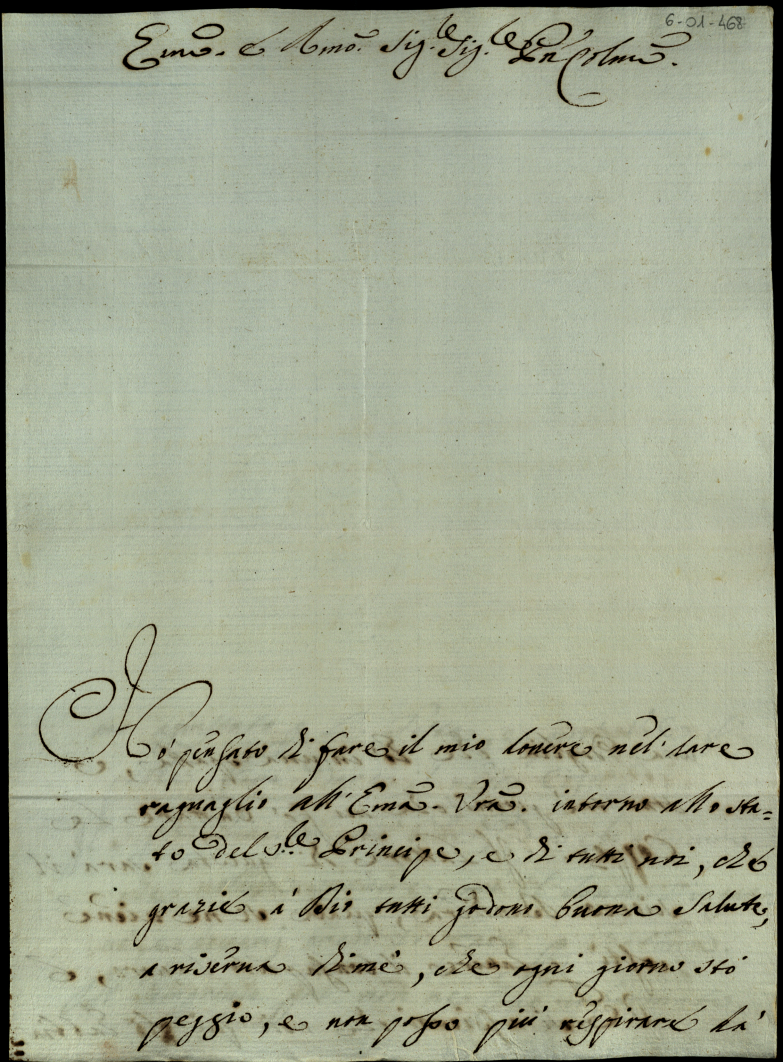 6-01-468
Emo. e Rmo. Sig.re Sig.re Pn Colmo.
Hó pensato di fare il mio douere nel' dare
raguaglio all'Ema. Vra. intorno allo sta=
to del S.re Principe, e di tutti noi, che
grazie á Dio tutti godono buona Salute,
a riserua di mé, che ogni giorno stó
peggio, e non posso piú respirare dá